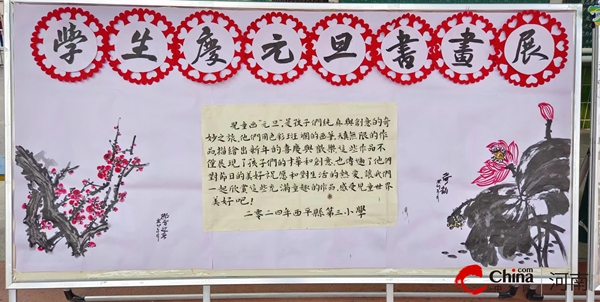 學生慶元旦書畫展
兒童画“元旦”,是孩子們純真與創意的奇
妙之旅,他們用色彩斑斕的画筆,天真無限的作
品描繪出新年的喜慶與歡樂,這些作品不
僅展現了孩子們的才華和創意,也傳遞了他們
對節日的美好祝愿和對生活的熱愛,讓我們
一起欣賞這些充滿童趣的作品,感受兒童世界
美好吧!
二零二四年西平縣第三小學
China.com
河南